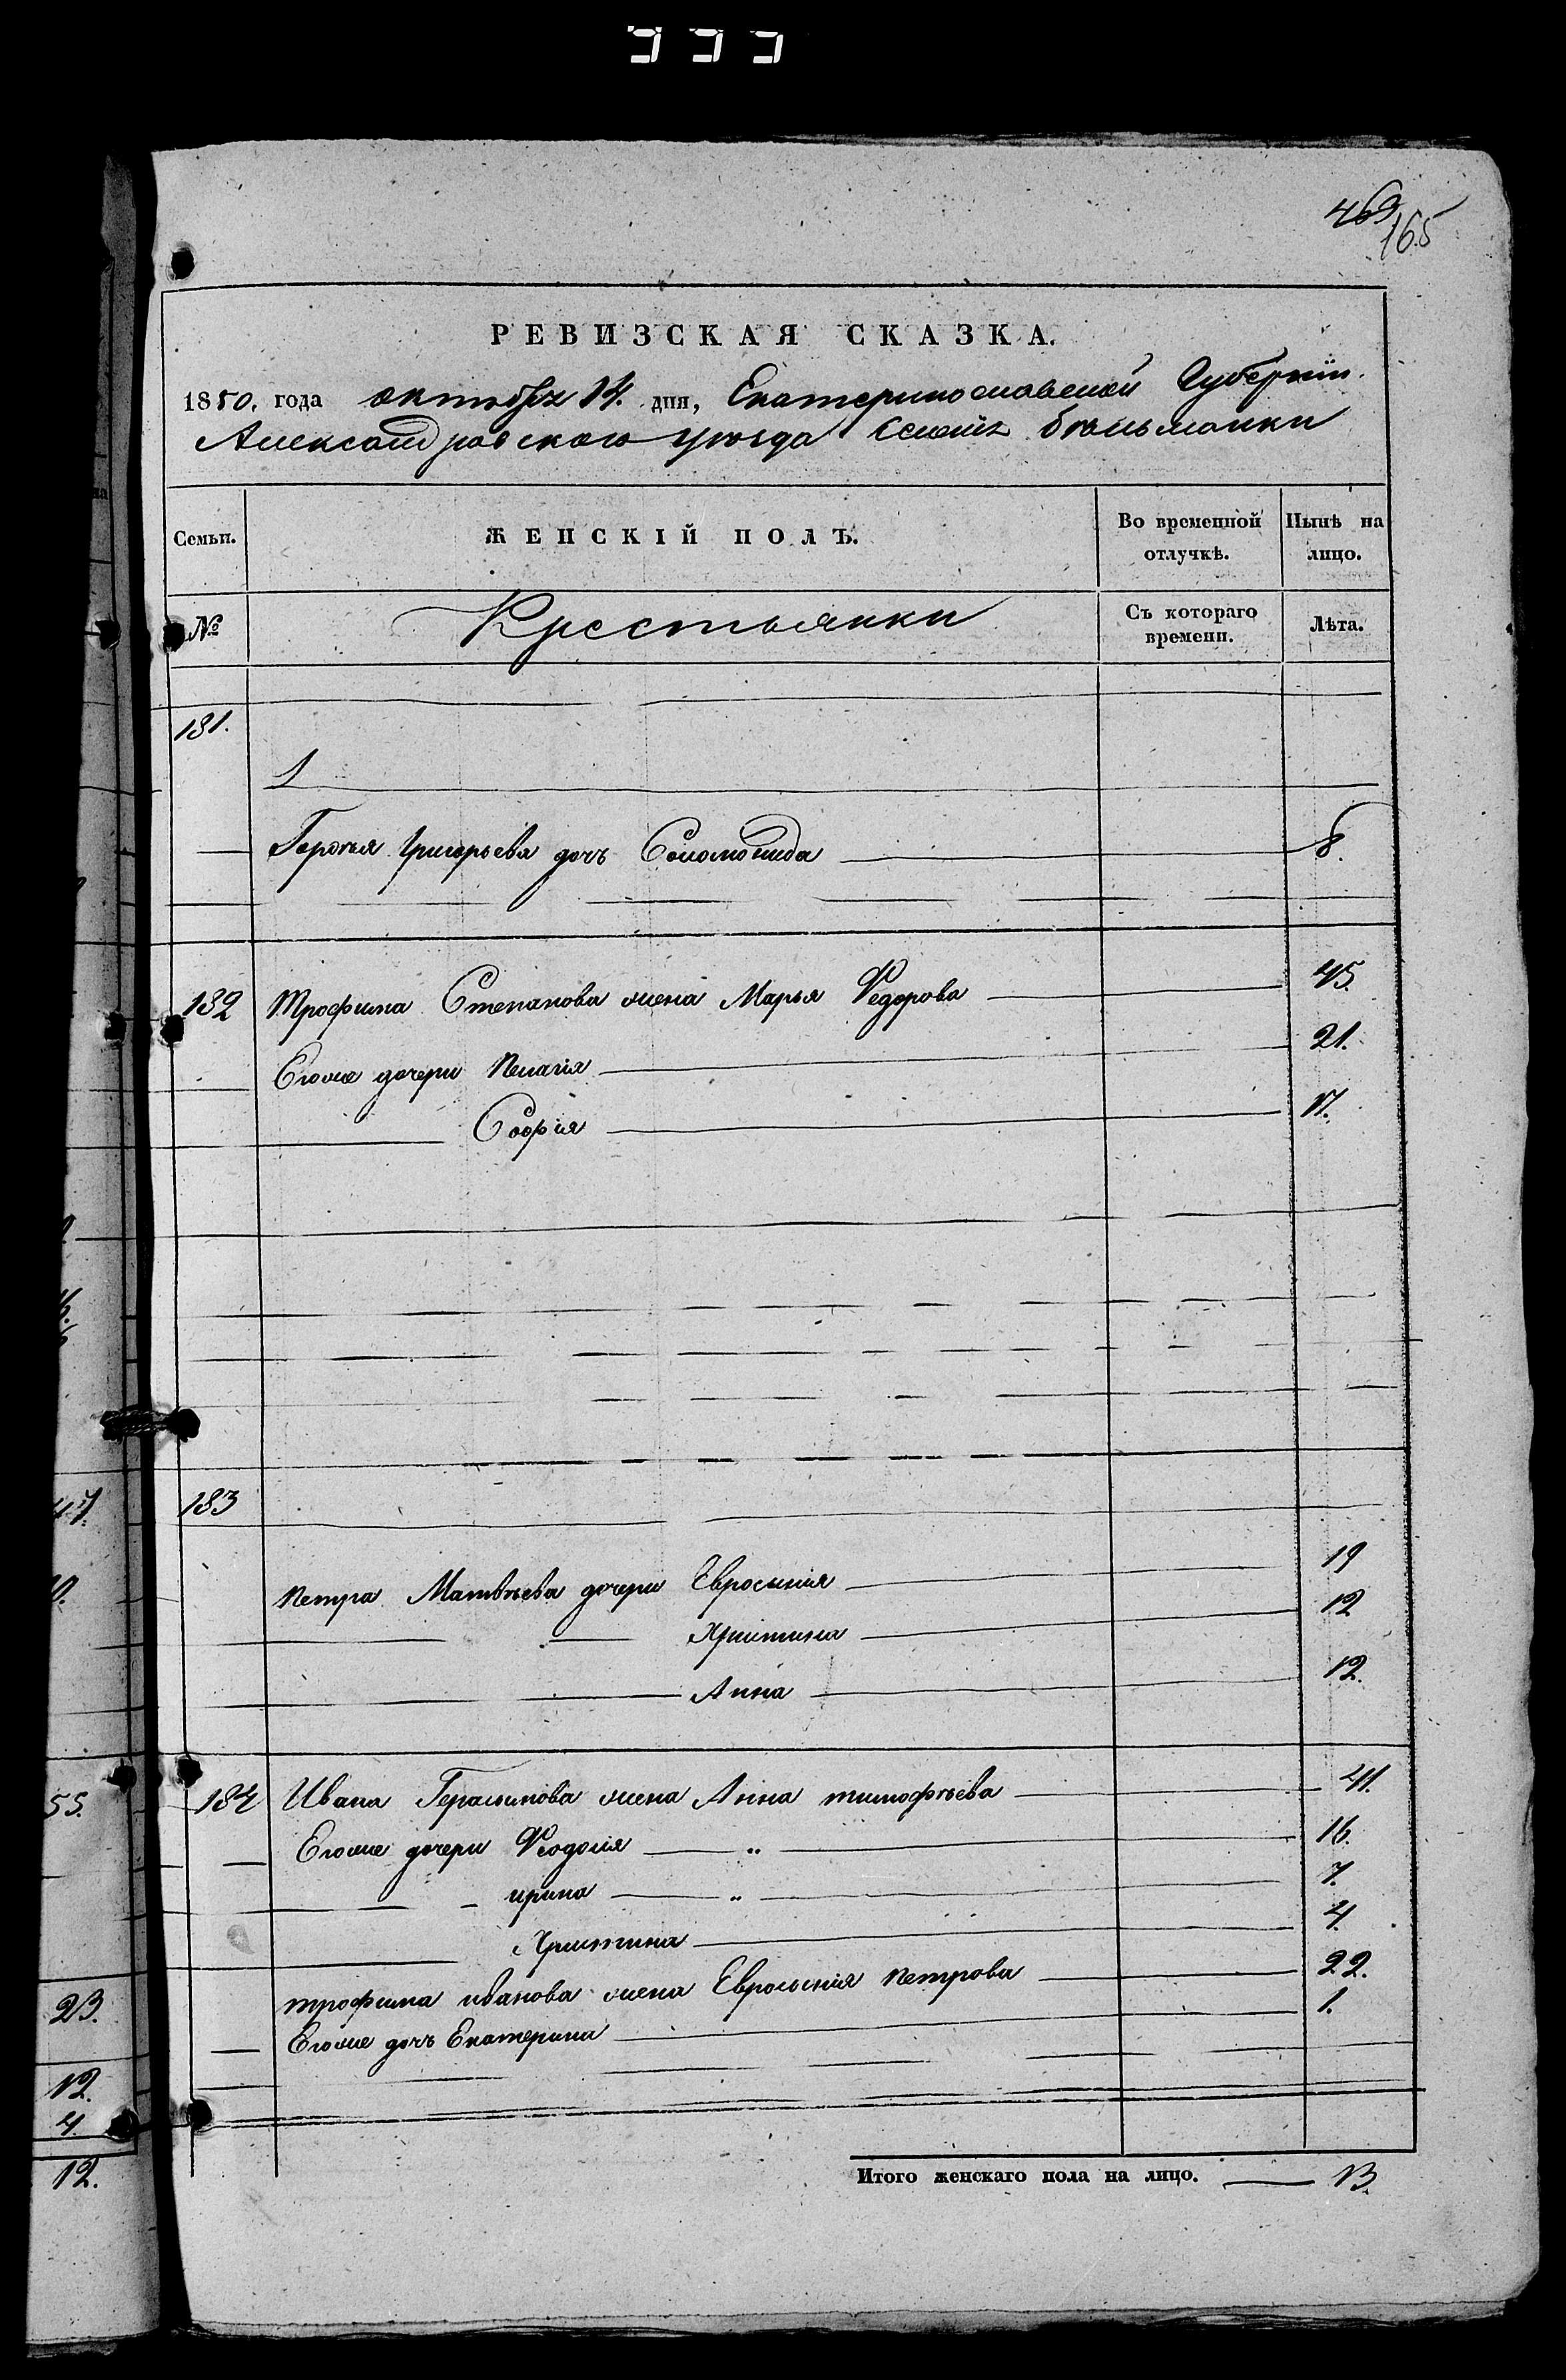 469
165
РЕВИЗСКАЯ СКАЗКА.
1850. года октября 14. дня, Екатеринославской Губернiи.
Александровского уезда Бѣльманки
Семьи. ЖЕНСКІЙ ПОЛЪ. Во временной отлучкѣ. Нынѣ на лицо.
№ Крестьянки Съ котораго времени. Лѣта.
181.
1
Григорьева дочь Соломонида 8.
182 Трофима Степанова жена Марья Федорова 45.
Егоже дочери Пелагія 21.
Софія 17.
183
Петра Матвѣева дочери Евросинія 19
Христина 12
Анна 12.
184 Ивана Герасимова жена Анна тимофѣева 41.
Егоже дочери Феодосія 16.
ирина 7.
Христина 4.
трофима иванова жена Евросинія петрова 22.
Егоже дочь Екатерина 1.
Итого женскаго пола на лицо. 13.
47.
55.
23.
12.
4.
12.